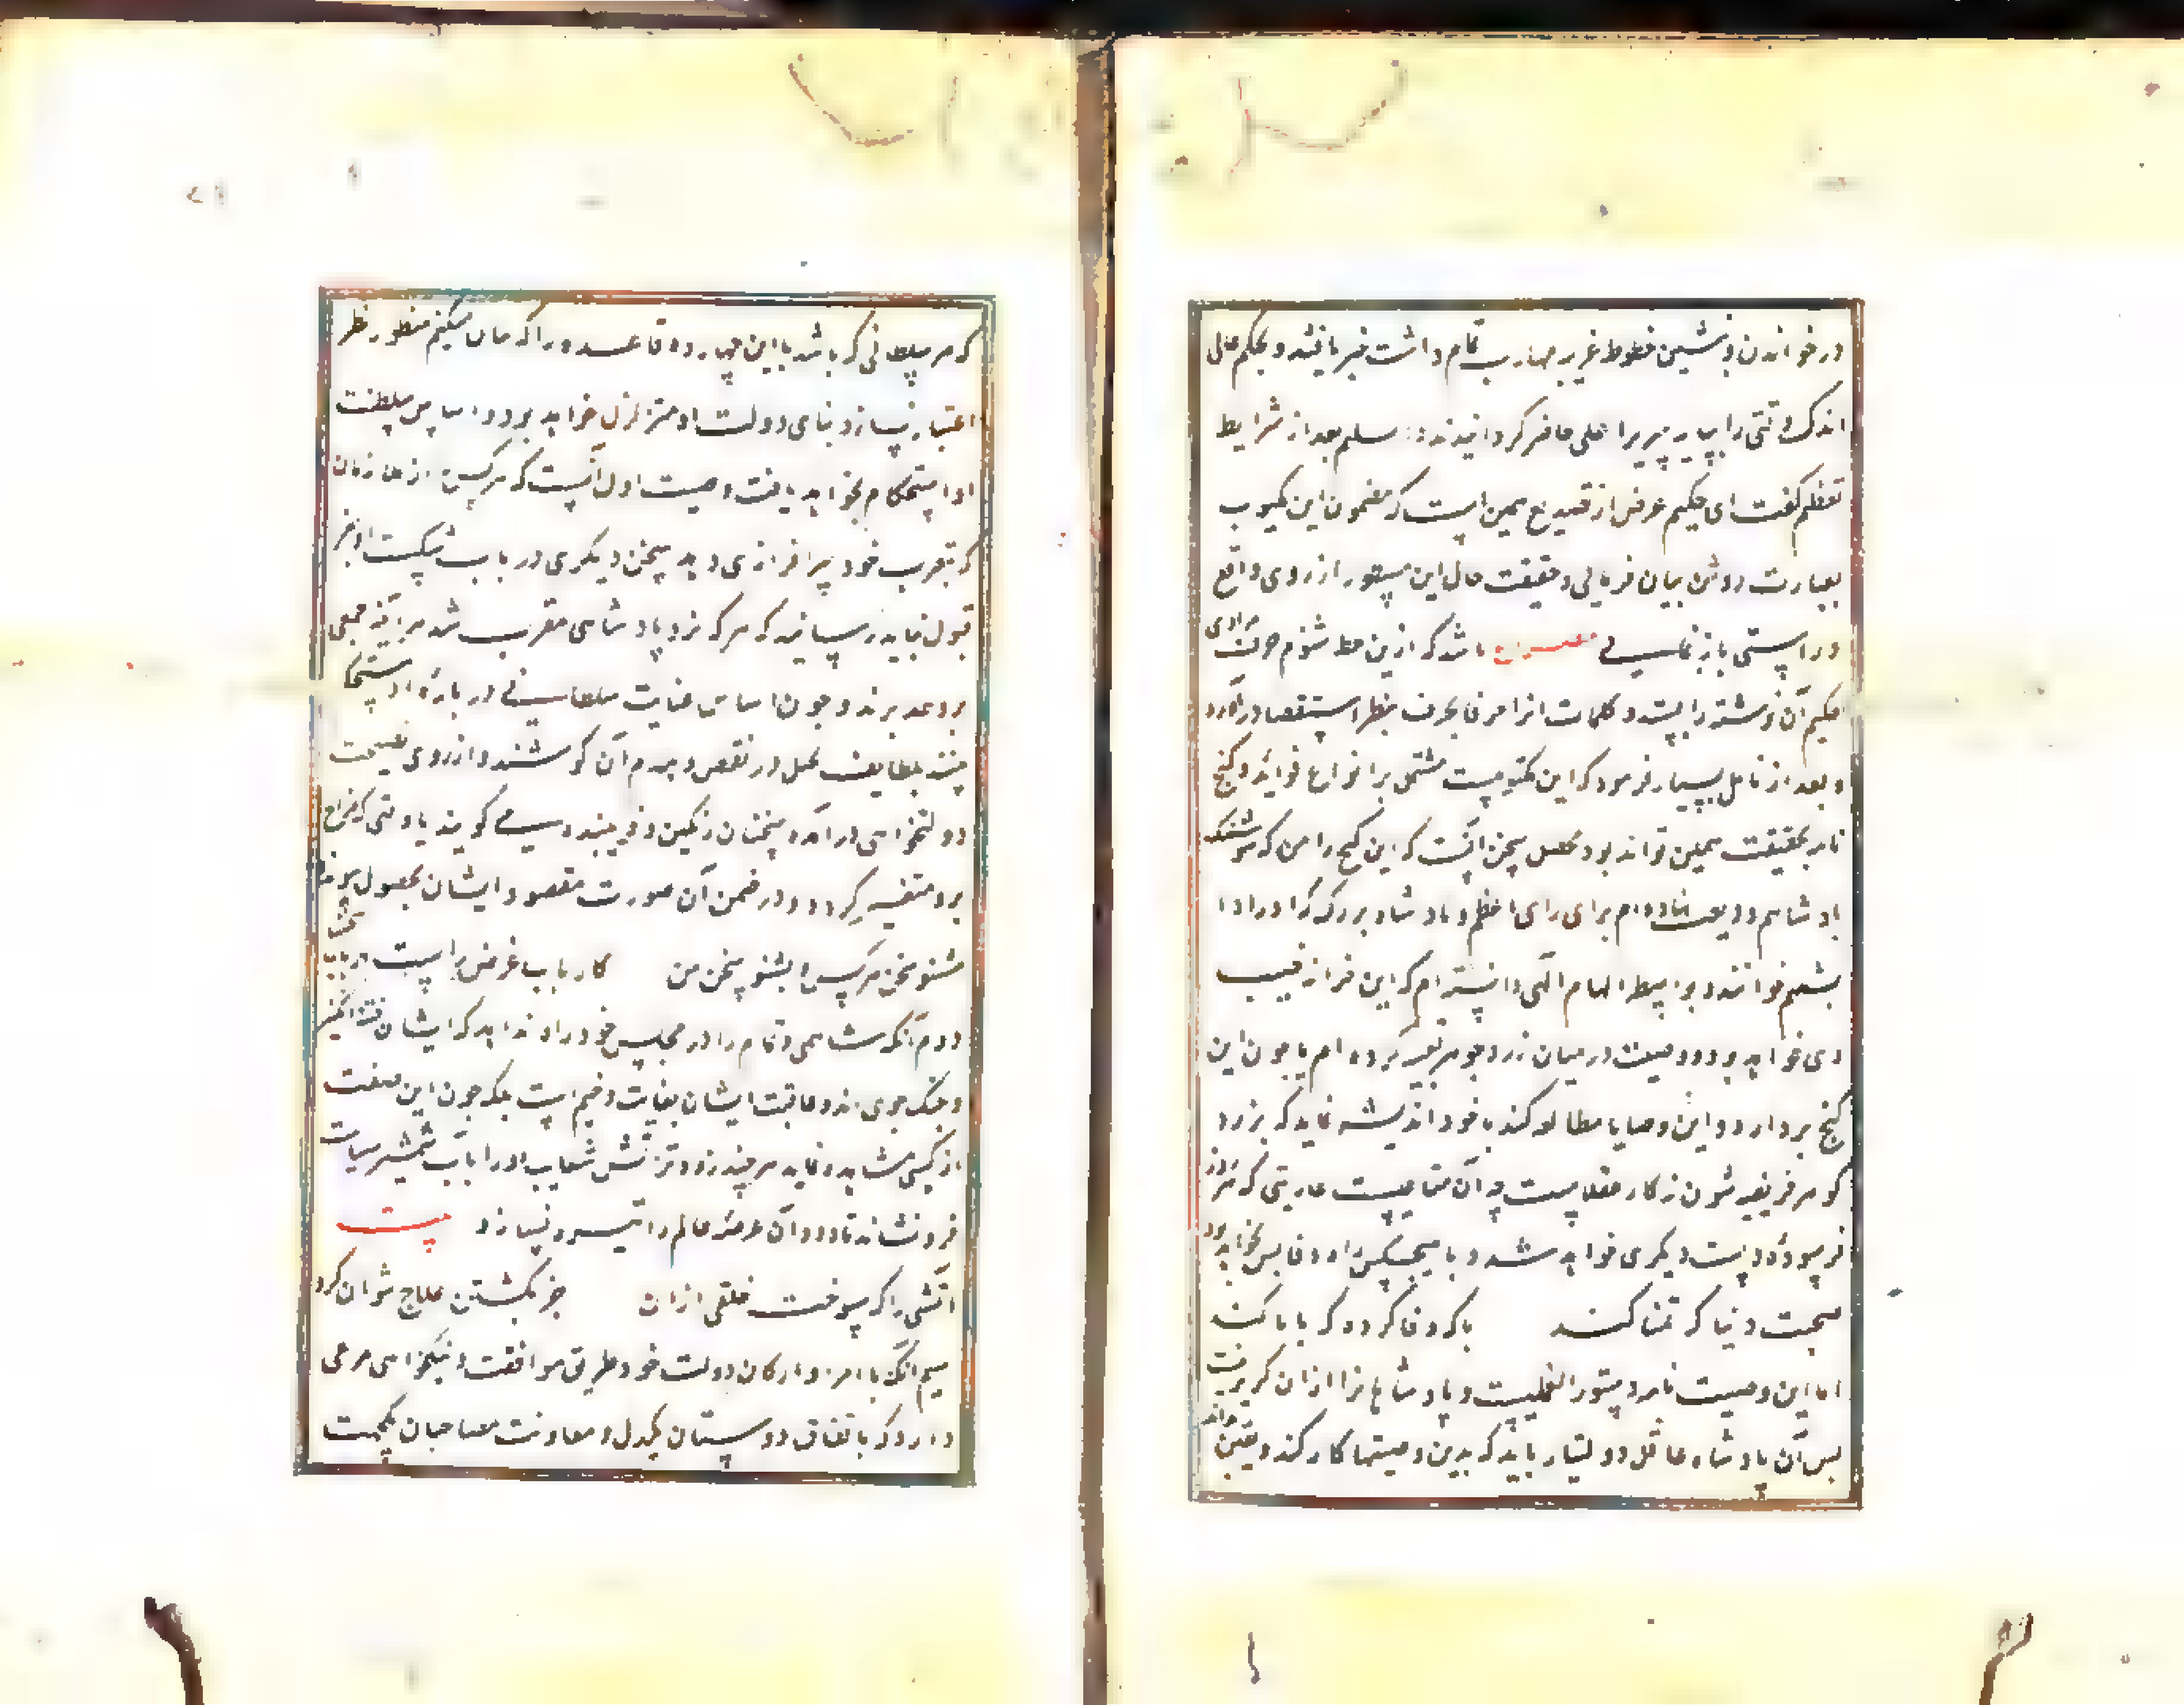 در خواندن و نبشتن خطوط غریبه مهارت تمام داشت خبر یافتند و بحکم عالی
اندک وقتی را بپایه سریر اعلی حاضر کردانیدند دابسلیم بعد از شرایط
تعظیم کفت ای حکیم غرض از تصدیع همین است که مضمون این مکتوب
بعبارت روشن بیان فرمائی و حقیقت حال این مسطور از روی واقع
و راستی باز نمایی مصراع باشد که ازین خط شنوم حرف مرادی
حکیم آن نوشته را بستد و کلمات انرا حرفا بحرف بنظر استقصا درآورد
و بعد از تامل بسیار فرمود که این مکتوبیست مشتمل بر انواع فواید و کنج
نامه بحقیقت همین تواند بود محصل سخن آنست که این کنج را من که هوشنک
پادشاهم ودیعت نهاده‌ام برای رای اعظم و پادشاه بزرک که او را دا
بشلیم خوانند و بواسطه الهام الهی دانسته‌ام که این خزانه نصیب
وی خواهد بود و وصیت در میان زر و جوهر تعبیه کرده ام تا چون این
کنج بردارد و این وصایا مطالعه کند با خود اندیشه نماید که بزر و
کوهر فریفته شدن نه کار عقلاست چه آن متاعیست عاریتی که هر روز
فرسوده دست دیکری خواهد شد و با هیچکس راه وفا بسر نخواهد برد
صحبت دنیا که تمنا کند با که وفا کرد که با ما کند
اما این وصیت نامه دستور العملیست و پادشاهان را از ان کریز نیست
پس آن پادشاه عاقل دولتیار باید که بدین وصیتها کار کند و یقین داند
که هر سلطانی که باشد با این چهارده قاعده را که بیان میکنم منظور نظر
اعتبار نسازد بنای دولت او متزلزل خواهد بود و اساس سلطنت
او استحکام نخواهد یافت وصیت اول آنست که هر کس از ملازمان
که بتقرب خود سرافرازی دهد سخن دیکری در باب شکست او بعز
قبول نباید رسانید که هر که نزد پادشاهی مقرب شد هر آینه جمعی
برو حسد برند و چون اساس عنایت سلطانی در باره او مستحکم
بینند بلطایف حیل در نقص و هدم آن کوشند و از روی نصیحت
دولتخواهی درآمده سخنان رنکین و فریبنده می کویند تا وقتی که مزاج
برو متغیر کردد و در ضمن آن صورت مقصود ایشان بحصول پیوندد
مشنو سخن هر کس و بشنو سخن من کارباب غرض راست درین باب سخنها
دوم آنکه ساعی و نمام را در مجلس خود راه ندهد که ایشان فتنه انکیز
و جنک جوی اند و عاقبت ایشان بغایت وخیم است بلکه چون این صفت
از کسی مشاهده نماید هر چند زودتر آتش سعایت او را بآب شمشیر سیاست
فرو نشاند تا دود آن عرصه عالم را تیره نسازد بیت
آتشی را که سوخت خلقی ازان جز بکشتن علاج نتوان کرد
سیم آنکه با امرا و ارکان دولت خود طریق موافقت و نیکخواهی مرعی
دارد که باتفاق دوستان یکدل و معاونت مصاحبان یکجهت